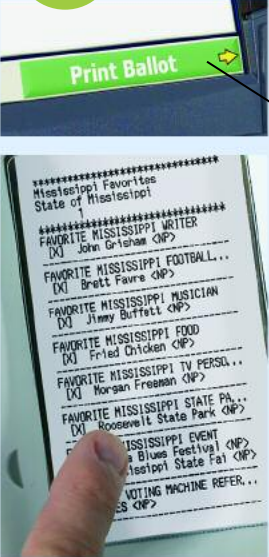 Print Ballot
********************************
Mississippi Favorites
State of Mississippi
1
********************************
FAVORITE MISSISSIPPI WRITER
[X] John Grisham <NP>
FAVORITE MISSISSIPPI FOOTBALL...
[X] Brett Favre <NP>
FAVORITE MISSISSIPPI MUSICIAN
[X] Jimmy Buffett <NP>
FAVORITE MISSISSIPPI FOOD
[X] Fried Chicken <NP>
FAVORITE MISSISSIPPI TV PERSO...
[X] Morgan Freeman <NP>
FAVORITE MISSISSIPPI STATE PA...
[X] Roosevelt State Park <NP>
MISSISSIPPI EVENT
Blues Festival <NP>
State Fai <NP>
VOTING MACHINE REFER...
<NP>